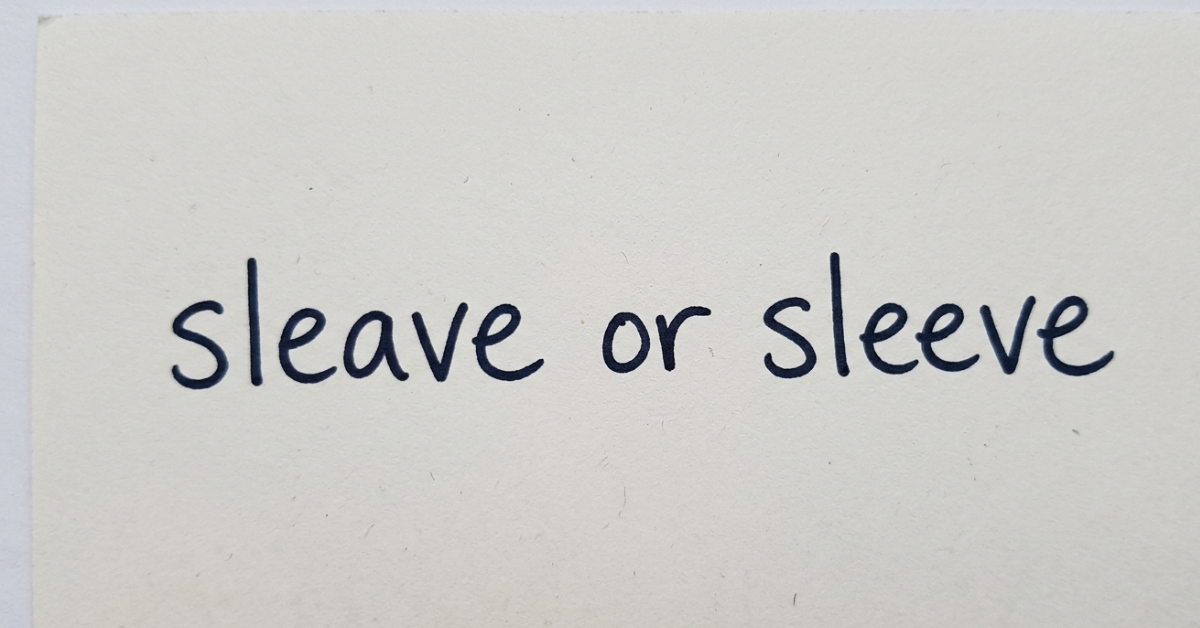 sleave or sleeve